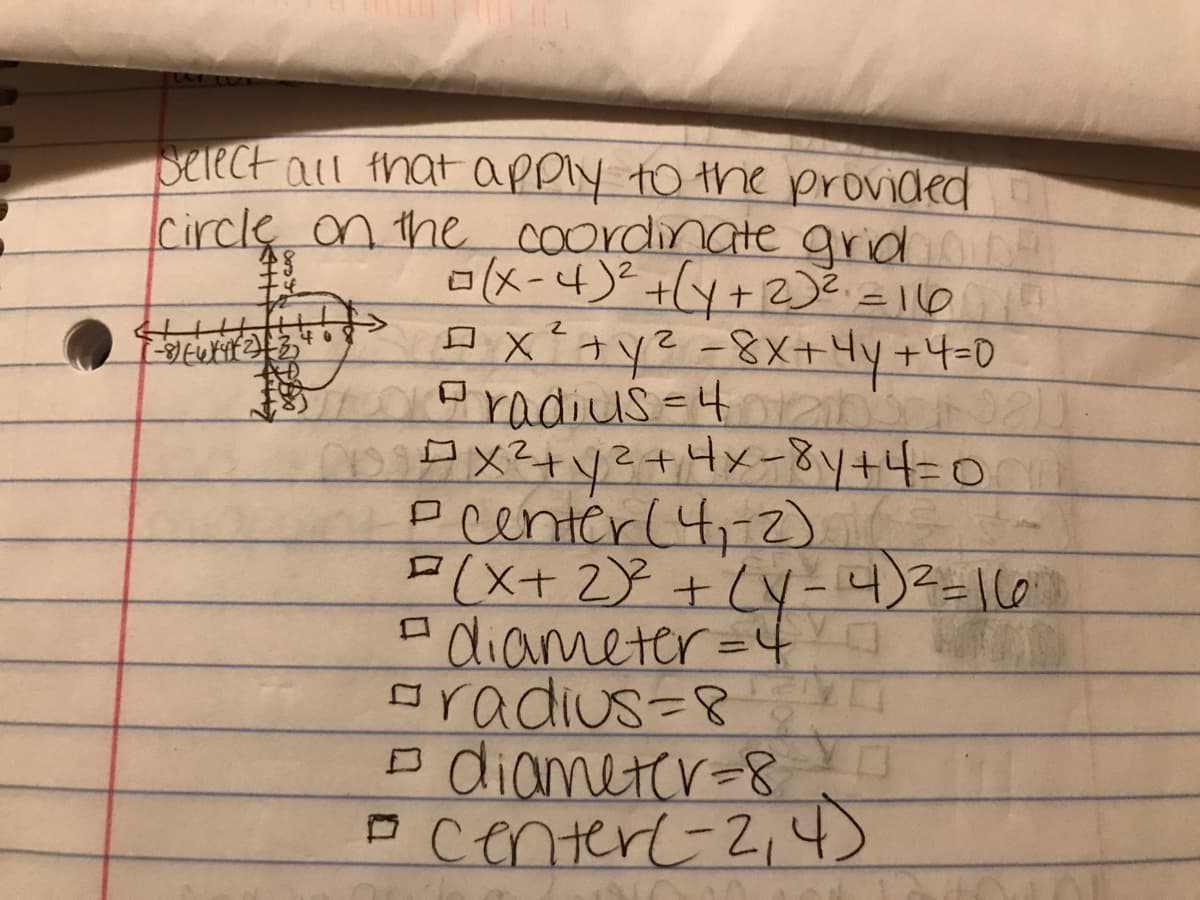 Select all that apply to the provided
circle on the coordinate grid
□ (x-4)² + (y+2)² = 16
□ x² + y² - 8x + 4y + 4 = 0
□ radius = 4
□ x² + y² + 4x - 8y + 4 = 0
□ center (4, -2)
□ (x+2)² + (y-4)² = 16
□ diameter = 4
□ radius = 8
□ diameter = 8
□ center (-2, 4)